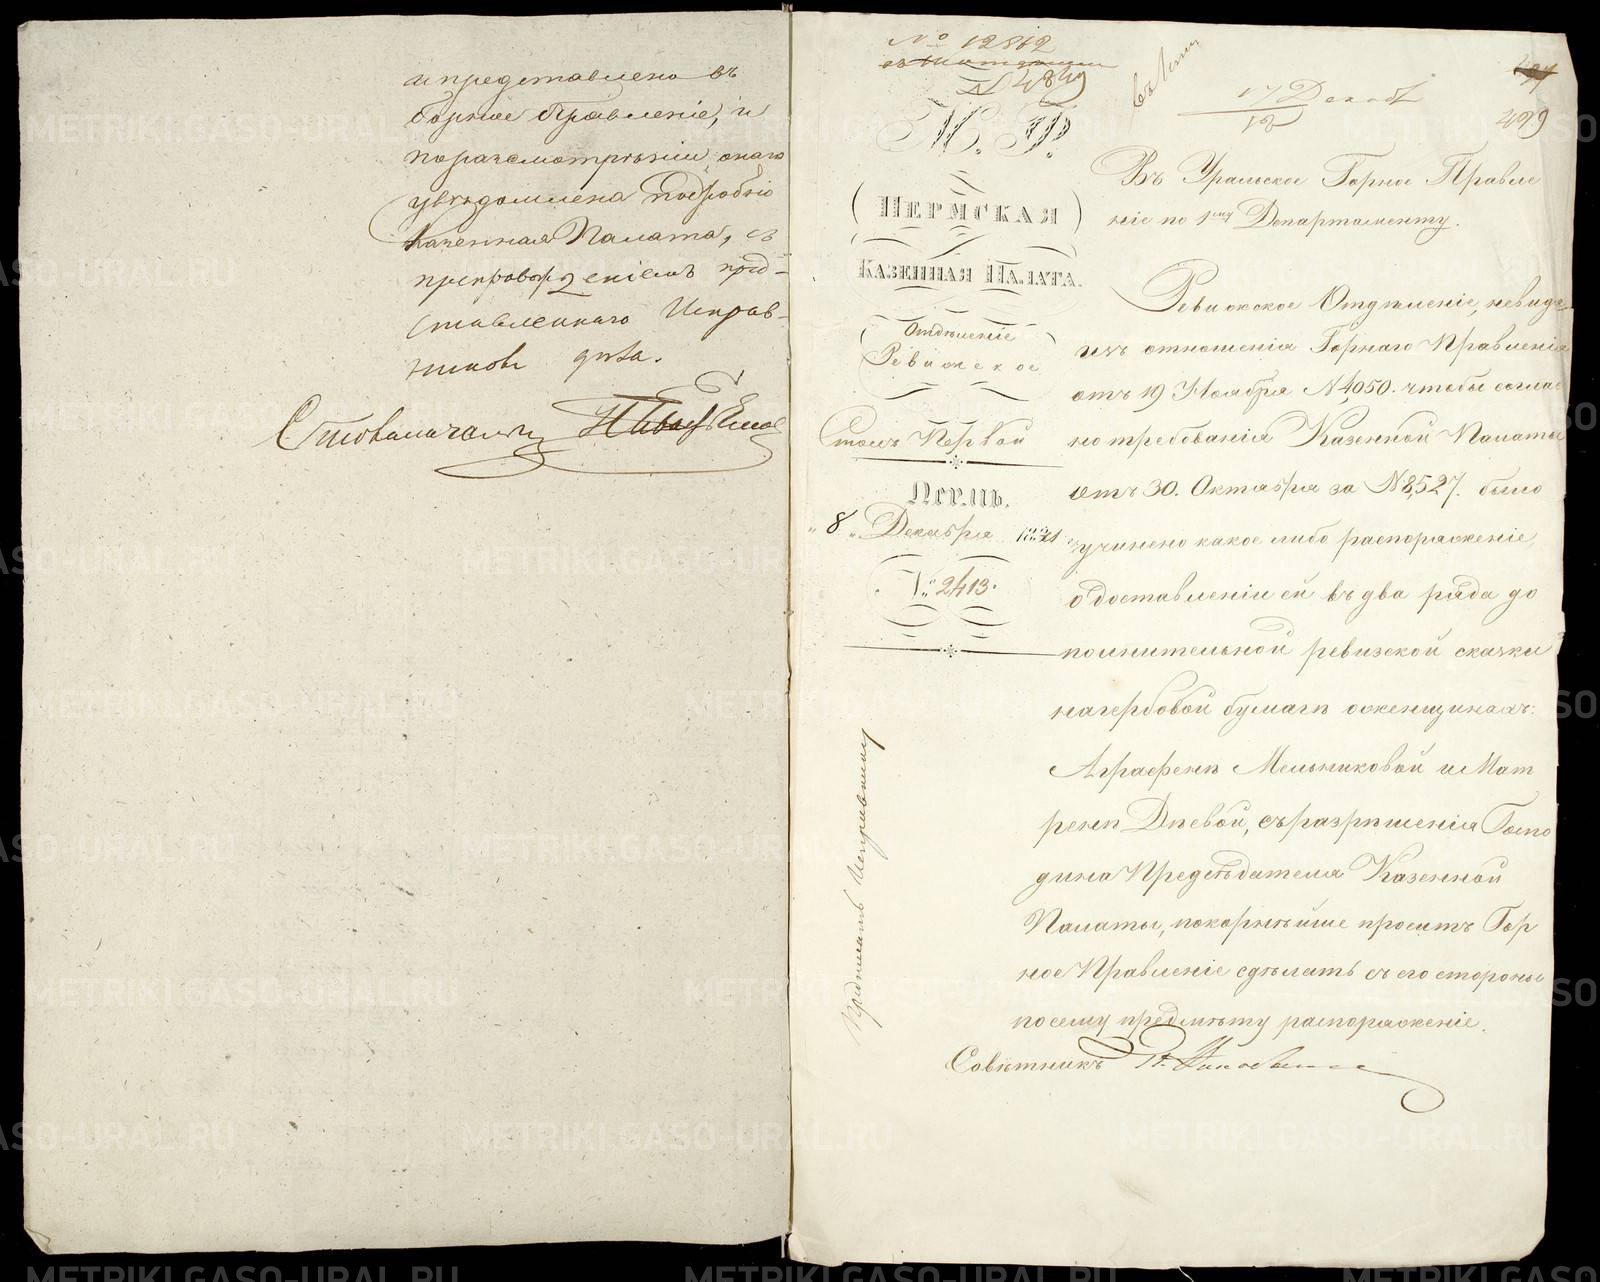 и представлено въ
Горное Правленіе, и
по разсмотрѣніи онаго
увѣдомлена подробно
Казенная Палата, съ
препровожденіемъ пред-
ставленнаго Исправ-
никомъ дѣла.
Столоначальникъ
№ 12862
№ 4849
17 Декабря
499
М. Ф.
ПЕРМСКАЯ
КАЗЕННАЯ ПАЛАТА.
Отдѣленіе
Ревизское
Столъ Первой
Пермь.
"8" Декабря
№ 2413.
Въ Уральское Горное Правле
ніе по 1му Департаменту.
Ревизское Отдѣленіе, невидя
изъ отношенія Горнаго Правленія
отъ 19 Ноября № 4050. чтобы соглас
но требованія Казенной Палаты
отъ 30. Октября за № 8,527. было
учинено какое либо распоряженіе,
о доставленіи ей въ два ряда до
полнительной ревизской сказки
на гербовой бумагѣ о женщинахъ:
Аграфенѣ Мельниковой и Мат
ренѣ Дѣевой, съ разрѣшенія Госпо
дина Предсѣдателя Казенной
Палаты, покорнѣйше проситъ Гор
ное Правленіе сдѣлать съ его стороны
по сему предмѣту распоряженіе.
Совѣтникъ
Предписать Исправнику
METRIKI.GASO-URAL.RU